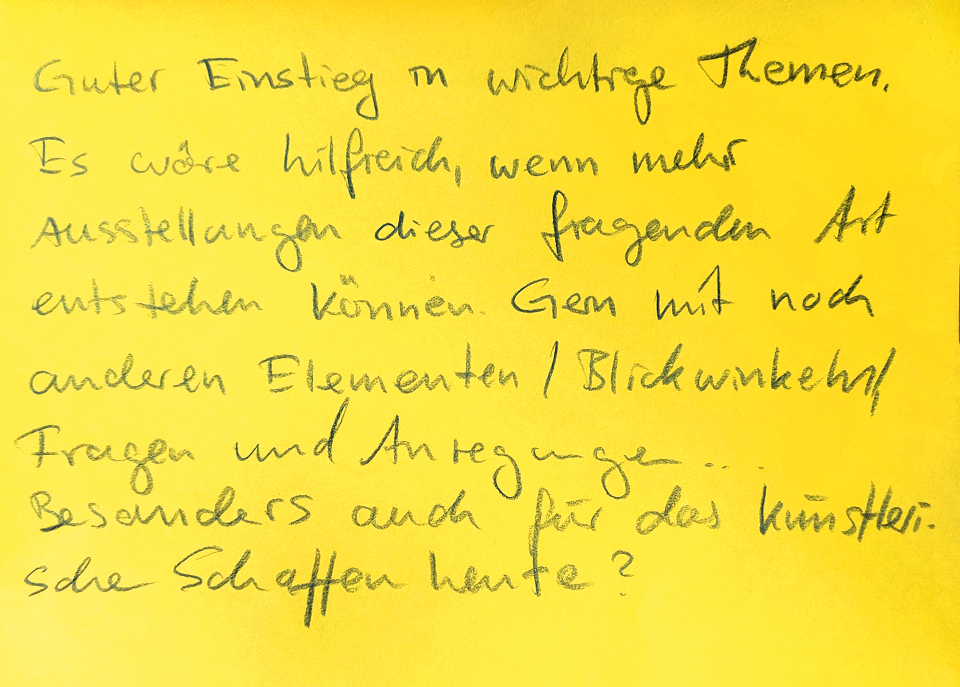 Guter Einstieg in wichtige Themen.
Es wäre hilfreich, wenn mehr
Ausstellungen dieser fragenden Art
entstehen können. Gern mit noch
anderen Elementen / Blickwinkeln /
Fragen und Anregungen ...
Besonders auch für das künstleri-
sche Schaffen heute?